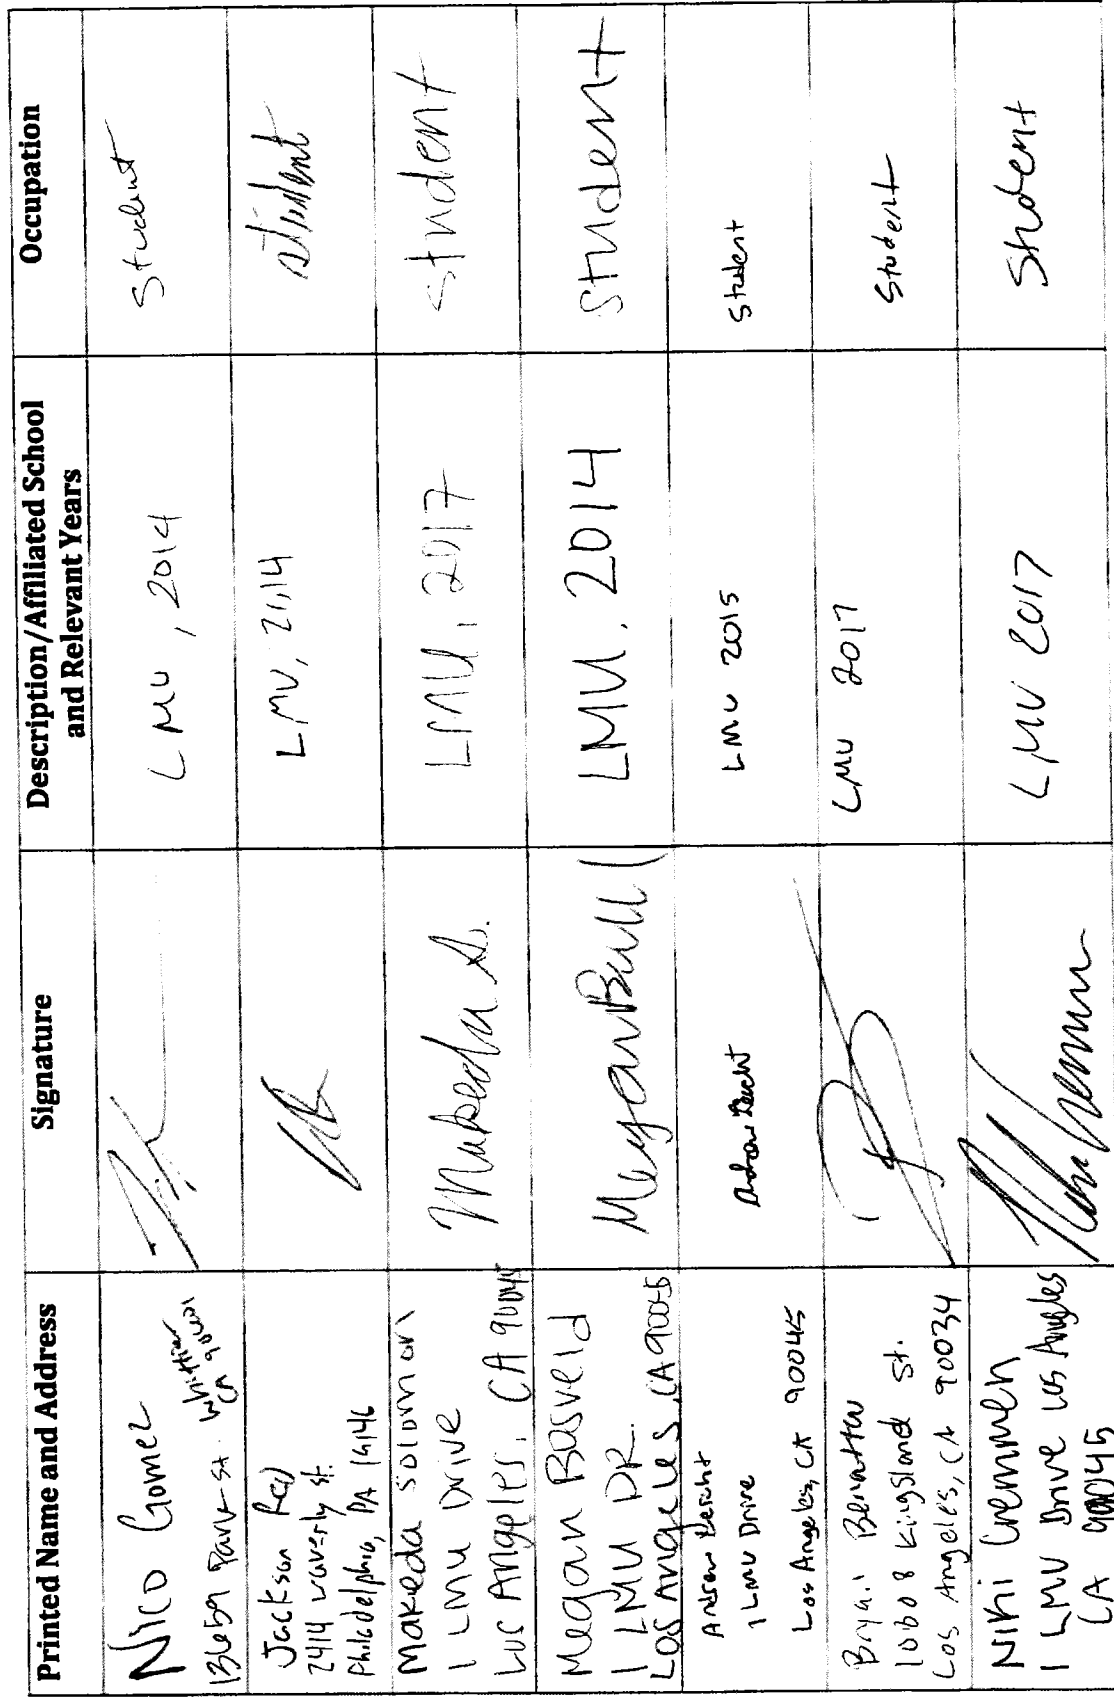 Printed Name and Address
Signature
Description/Affiliated School
and Relevant Years
Occupation
Nico Gomez
13659 Park St. Whittier
CA 90601
LMU, 2014
Student
Jackson
2414 Waverly St.
Philadelphia, PA 19146
LMU, 2014
student
Makeda Solomon
1 LMU Drive
Los Angeles, CA 90045
Makeda S.
LMU, 2017
student
Megan Basveld
1 LMU DR.
Los Angeles, CA 90045
Megan
LMU, 2014
Student
Andrew
1 LMU Drive
Los Angeles, CA 90045
Andrew
LMU 2015
Student
Benattar
10608 Kingsland St.
Los Angeles, CA 90034
LMU 2017
Student
Niki Cremmen
1 LMU Drive Los Angeles
CA 90045
LMU 2017
Student